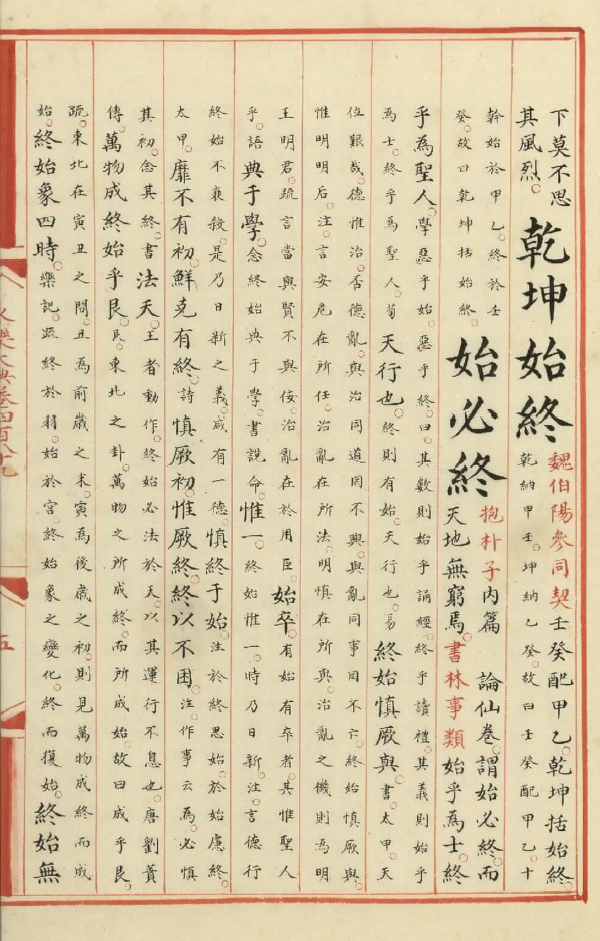 下莫不思
其風烈。
乾坤始終
魏伯陽參同契壬癸配甲乙。乾坤括始終。
乾納甲壬。坤納乙癸。故曰壬癸配甲乙。十
幹始於甲乙。終於壬
癸。故曰乾坤括始終。
始必終
抱朴子内篇 論仙卷。謂始必終。而
天地無窮焉。書林事類始乎為士。終
乎為聖人。學惡乎始。惡乎終。曰。其數則始乎誦經。終乎讀禮。其義則始乎
為士。終乎為聖人。荀 天行也。終則有始。天行也。易 終始慎厥與。書。太甲。天
位艱哉。德惟治。否德亂。與治同道罔不興。與亂同事罔不亡。終始慎厥與。
惟明明后。注。言安危在所任。治亂在所法。明慎在所與。治亂之機則為明
王明君。疏。言當與賢不與佞。治亂在於用臣。始卒。有始有卒者。其惟聖人
乎。語 典于學。念終始典于學。書說命。惟一。終始惟一。時乃日新。注。言德行
終始不衰殺。是乃日新之義。咸有一德。慎終于始。注。於終思始。於始慮終。
太甲。靡不有初。鮮克有終。詩 慎厥初。惟厥終。終以不困。注。作事云為。必慎
其初。念其終。書 法天。王者動作。終始必法於天。以其運行不息也。唐劉蕡
傳。萬物成終始乎艮。艮。東北之卦。萬物之所成終。而所成始。故曰成乎艮。
疏。東北在寅丑之間。丑為前歲之末。寅為後歲之初。則見萬物成終而成
始。終始象四時。樂記。疏。終於羽。始於宮。終始象之變化。終而復始。終始無
永樂大典卷四百八十九
五